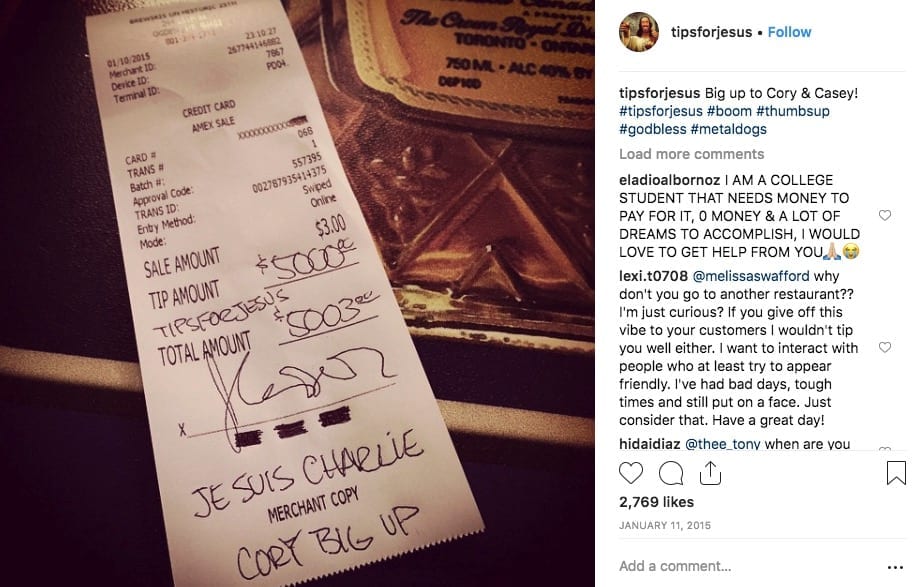 BREWSKIS ON HISTORIC 25TH
01/10/2015 23:10:27
Merchant ID: 267744146882
Device ID: 7867
Terminal ID: PD04.
CREDIT CARD
AMEX SALE
CARD # XXXXXXXXXXX
TRANS # 068
Batch #: 1
Approval Code: 557395
TRANS ID: 002787935414375
Entry Method: Swiped
Mode: Online
SALE AMOUNT $3.00
TIP AMOUNT $5000.00
TIPSFORJESUS
TOTAL AMOUNT $5003.00
X
JE SUIS CHARLIE
MERCHANT COPY
CORY BIG UP
Canada
The Crown Royal
TORONTO • ONTARIO
750 ML • ALC 40% BY
tipsforjesus • Follow
tipsforjesus Big up to Cory & Casey!
#tipsforjesus #boom #thumbsup
#godbless #metaldogs
Load more comments
eladioalbornoz I AM A COLLEGE
STUDENT THAT NEEDS MONEY TO
PAY FOR IT, 0 MONEY & A LOT OF
DREAMS TO ACCOMPLISH, I WOULD
LOVE TO GET HELP FROM YOU🙏🏼😭
lexi.t0708 @melissaswafford why
don't you go to another restaurant??
I'm just curious? If you give off this
vibe to your customers I wouldn't tip
you well either. I want to interact with
people who at least try to appear
friendly. I've had bad days, tough
times and still put on a face. Just
consider that. Have a great day!
hidaidiaz @thee_tony when are you
2,769 likes
JANUARY 11, 2015
Add a comment...